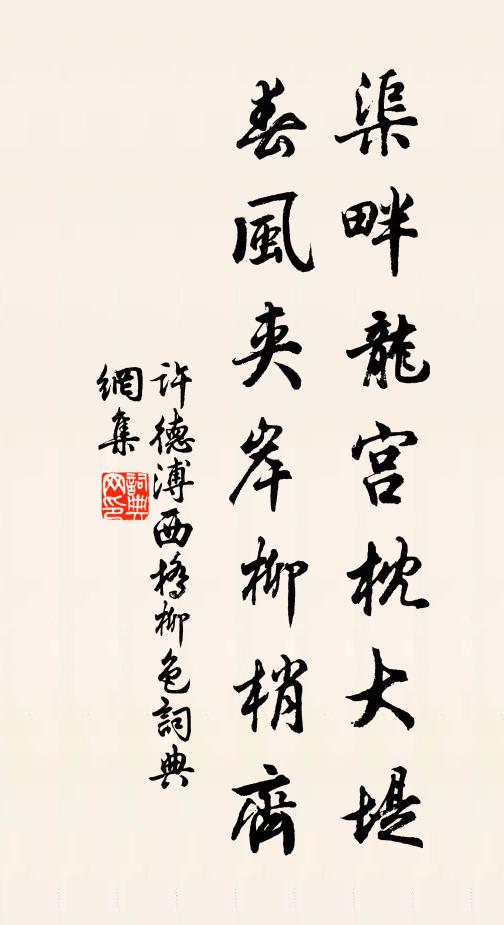 渠畔龍宮枕大堤
春風夾岸柳梢齊
許德溥西橋柳色詞典
網集
詞典網印